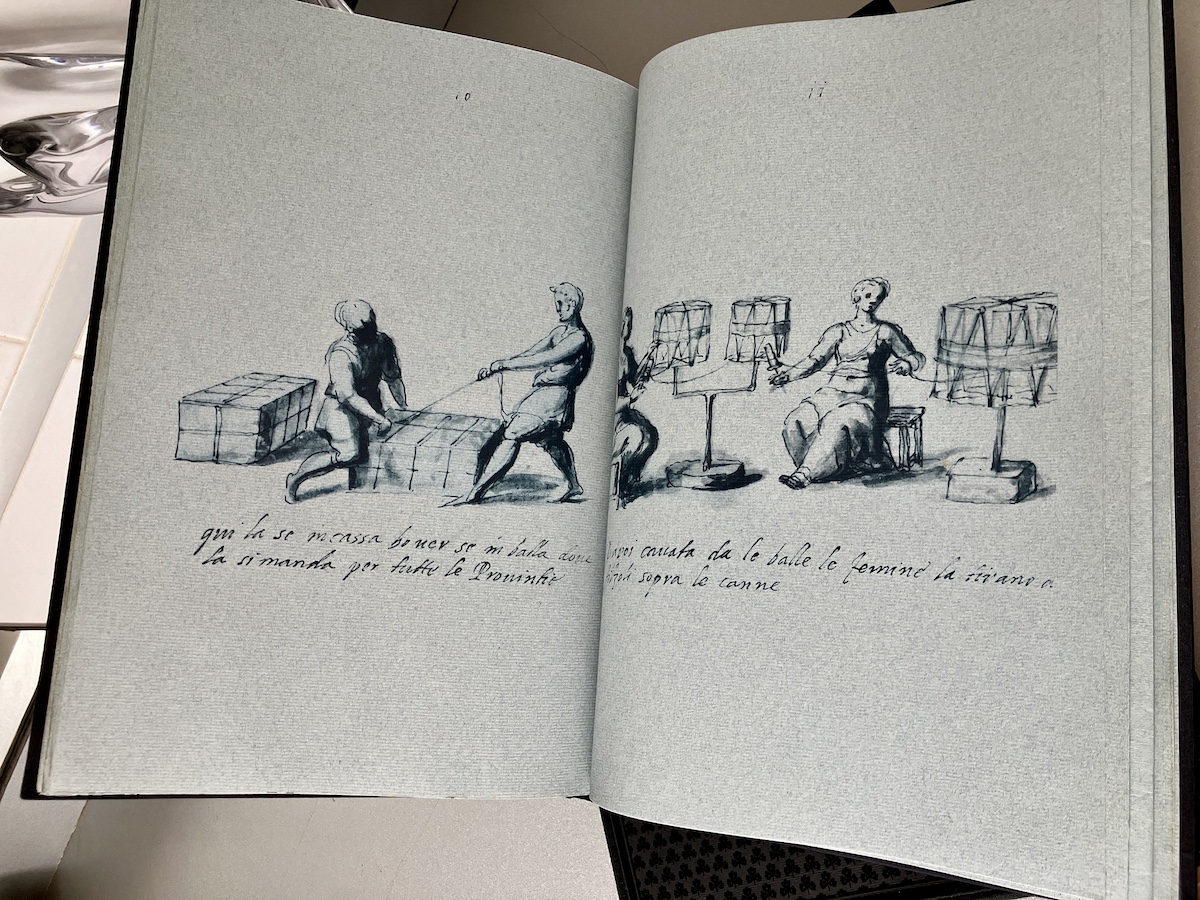 10
qui la se incassa bouer se in balla doue
la si manda per tutte le Prouintie
11
poi cauata da le balle le femine la tirano a
sopra le canne